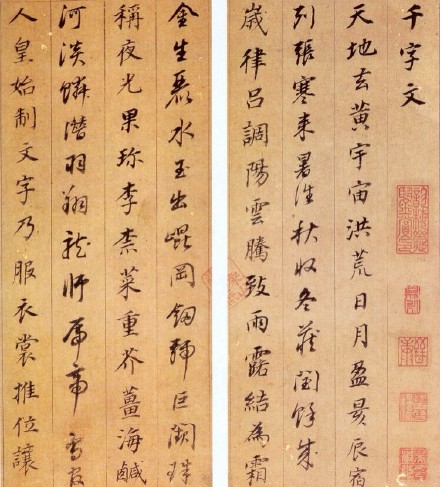 千字文
天地玄黃宇宙洪荒日月盈昃辰宿
列張寒来暑往秋收冬藏閏餘成
歲律呂調陽雲騰致雨露結為霜
金生麗水玉出崐岡劔號巨闕珠
稱夜光果珍李柰菜重芥薑海鹹
河淡鱗潛羽翔龍師火帝鳥官
人皇始制文字乃服衣裳推位讓